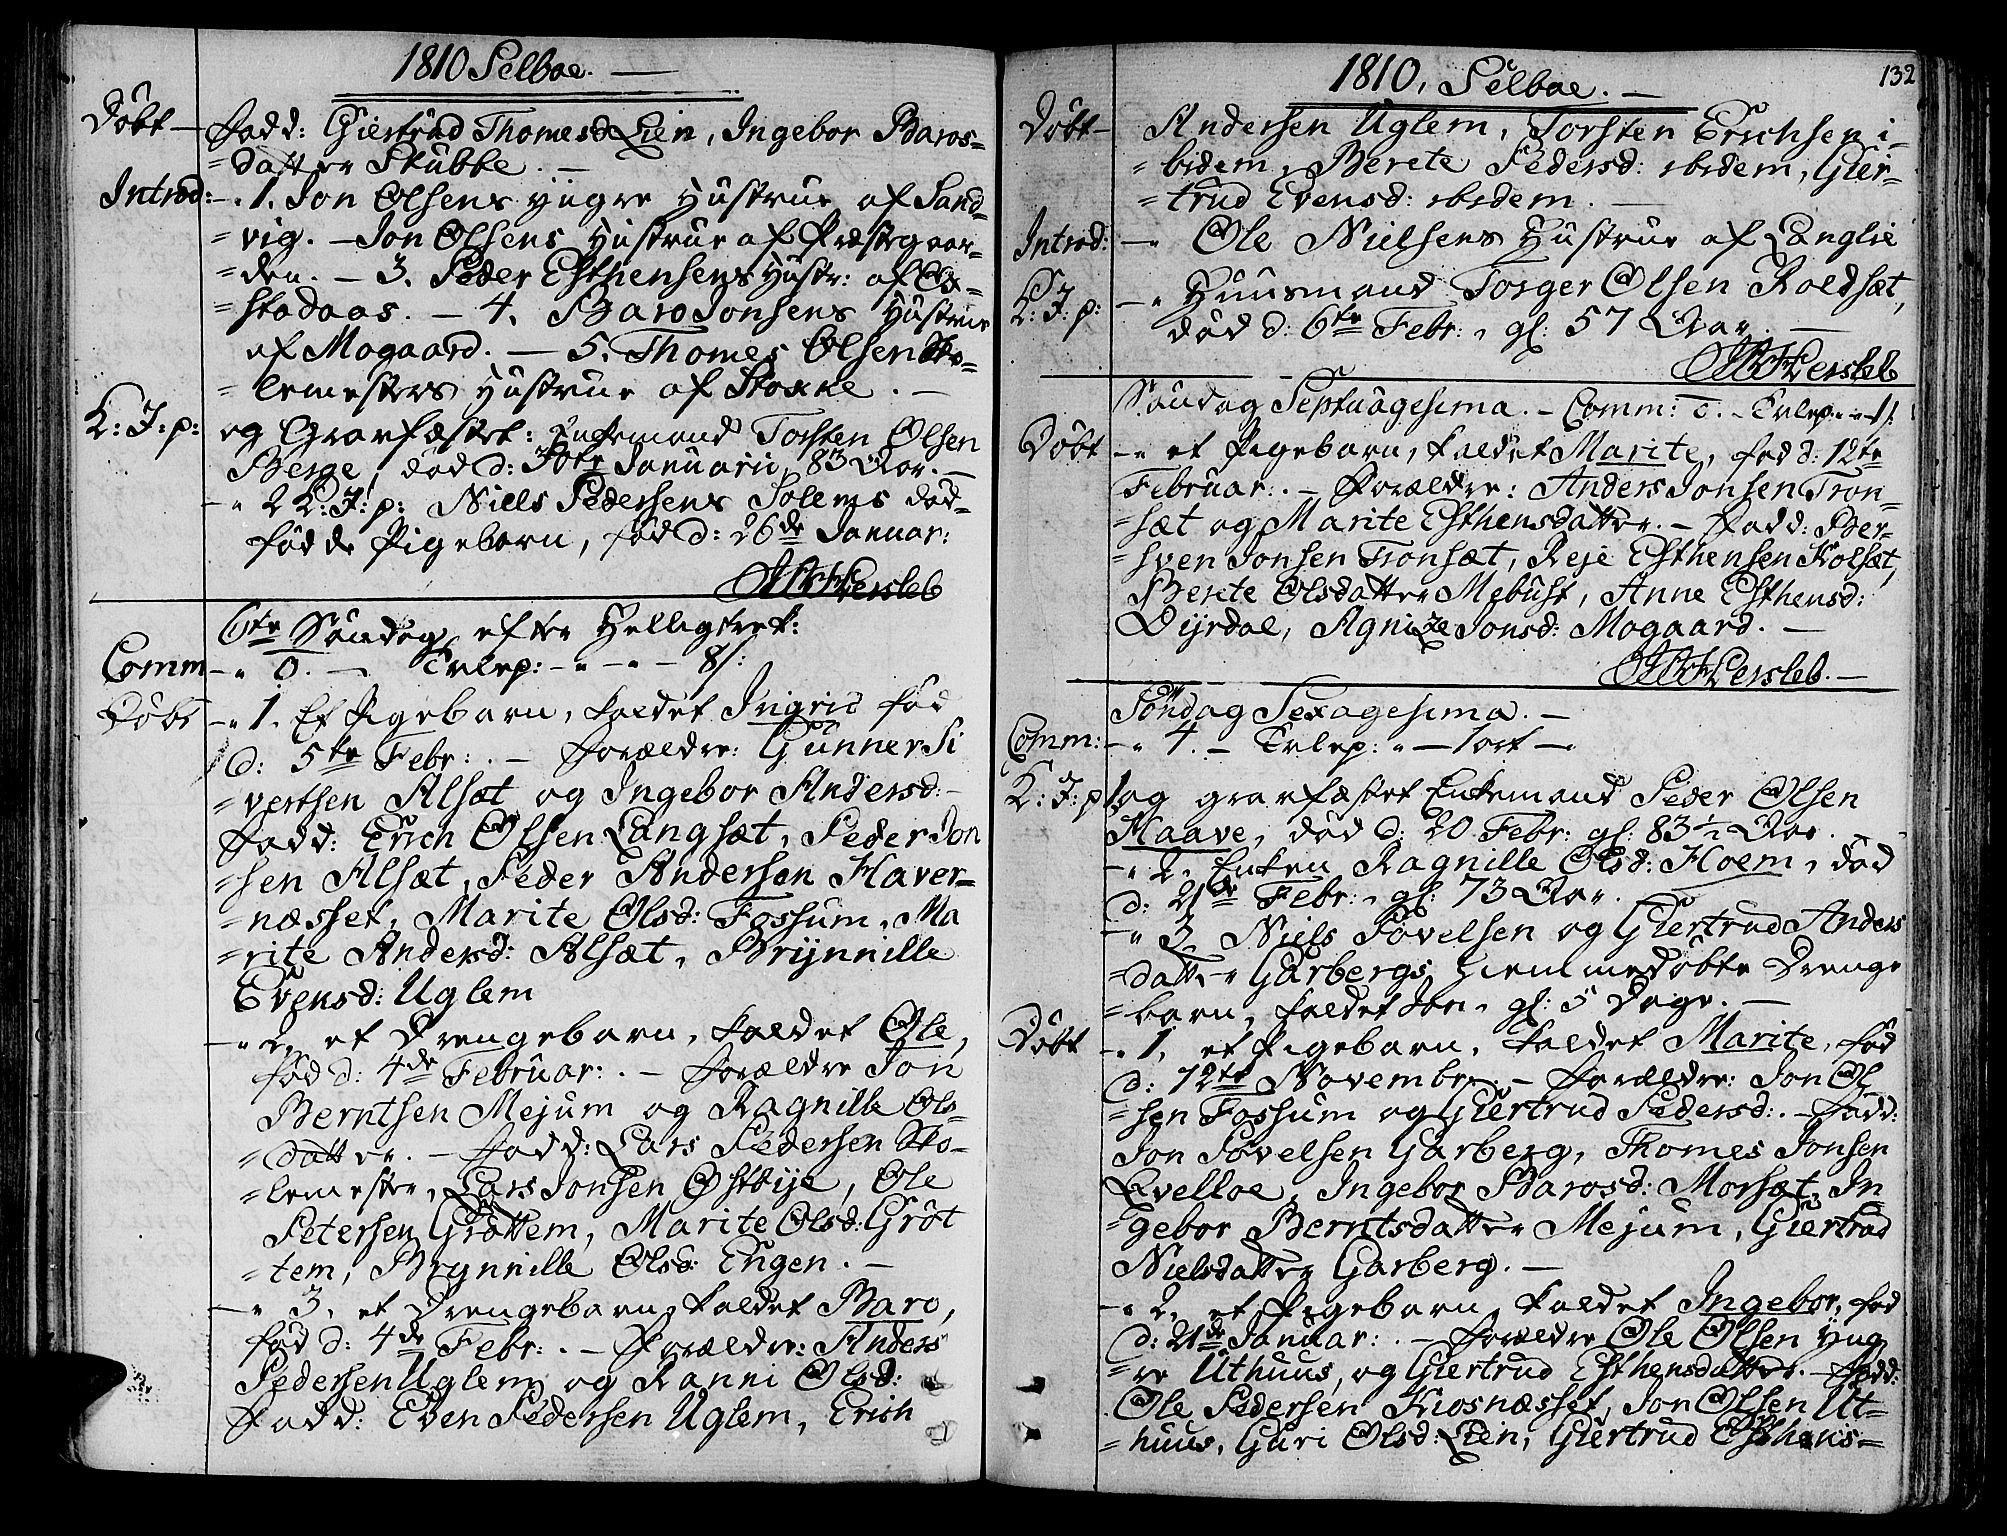 1810 Selboe. —
Döbt — Fadd: Giertrud Thomesd: Lien, Ingebor Baros=
=datter Stubbe. —
Introd: - „ 1. Jon Olsens yngre Hustrue af Sand=
=vig. — Jon Olsens Hustrue af Præstegaar=
=den. — 3. Peder Esthensens Hustr: af
=stadaas. — 4. Baro Jonsens Hustrue
af Mogaard. — 5. Thomes Olsen Sko=
=lemesters Hustrue af Stokke. —
K: J: p: og Gravfæstet: Enkemand Torsten Olsen
Berge, död d: Januarii, 83 Aar. —
- „ 2 K: J: p: Niels Pedersens Solems död=
födde Pigebarn, föd d: 26de Januar:
Hersleb
6te Söndag efter Helligtrek:
Comm - „ 0. — Tvlep: - „ - „ - 8 s:
Döbt - „ 1. Et Pigebarn, kaldet Ingrid föd
d: 5te Febr: . — Forældre: Gunner Si
=vertsen Alsæt og Ingebor Andersd: -
Fadd: Erich Olsen Langsæt, Peder Jon
=sen Alsæt, Peder Andersen Haver=
=næsset, Marite Olsd: Fossum, Ma
=rite Andersd: Alsæt, Brynnille
Evensd: Uglem
- „ 2, et Drengebarn, kaldet Ole,
föd d: 4de Februar: . — Forældre Jon
Berntsen Mejum og Ragnille Ols=
=datter. — Fadd: Lars Pedersen Sko=
=lemester, Lars Jonsen Östbye, Ole
Petersen Gröttem, Marite Olsd: Gröt
=tem, Brynnille Olsd: Engen. —
- „ 3, et Drengebarn, kaldet Baro,
föd d: 4de Febr: . — Forældre: Anders
Pedersen Uglem og Ranni Olsd:
Fadd: Even Pedersen Uglem, Erich
1810, Selboe. — 132
Döbt — Andersen Uglem, Torsten Erichsen i=
=bidem, Berete Pedersd: ibidem, Gier=
=trud Evensd: ibidem. —
Introd: - „ Ole Nielsens Hustrue af Langlie
K: J: p: - „ Huusmand Torger Olsen Roldsæt,
död d: 6te Febr: , gl: 57 Aar. —
Hersleb
Söndag Septuagesima. — Comm: 0. - Tvlep:
Döbt - „ et Pigebarn, kaldet Marite, föd d: 12te
Februar: . — Forældre: Anders Jonsen Tron=
=sæt og Marite Esthensdatter. — Fadd: Ber=
=sven Jonsen Tronsæt, Reje Esthensen Kolsæt,
Berete Olsdatter Mebust, Anne Esthensd:
Dyrdal, Agnize Jonsd: Mogaard. —
Hersleb. —
Söndag Sexagesima. —
Comm: - „ 4. — Tvlep: „ — 1 ort — „
K: J: p 1 og gravfæstet Enkemand Peder Olsen
Haave, död d: 20 Febr: gl: 83 ½ Aar. —
- „ 2, Enken Ragnille Olsd: Hoem, död
d: 21de Febr: , gl: 73 Aar.
- „ 3 Niels Povelsen og Giertrud Anders
datter Garbergs hiemmedöbte Drenge
=barn, kaldet Jon, gl: 5 Dage. —
Döbt - „ 1, et Pigebarn, kaldet Marite, föd
d: 12te November. — Forældre: Jon Ol
=sen Fossum og Giertrud Pedersd: . — Fadd:
Jon Povelsen Garberg, Thomes Jonsen
Evelloe, Ingebor Barosd: Morsæt, In
=gebor Berntsdatter Mejum, Giertrud
Nielsdatter Garberg. —
- „ 2, et Pigebarn, kaldet Ingebor, föd
d: 21de Januar: . — Forældre Ole Olsen yng
=re Uthuus, og Giertrud Esthensdatter. — Fadd:
Ole Pedersen Kiosnæsset, Jon Olsen Ut=
=huus, Guri Olsd: Lien, Giertrud Esthens=